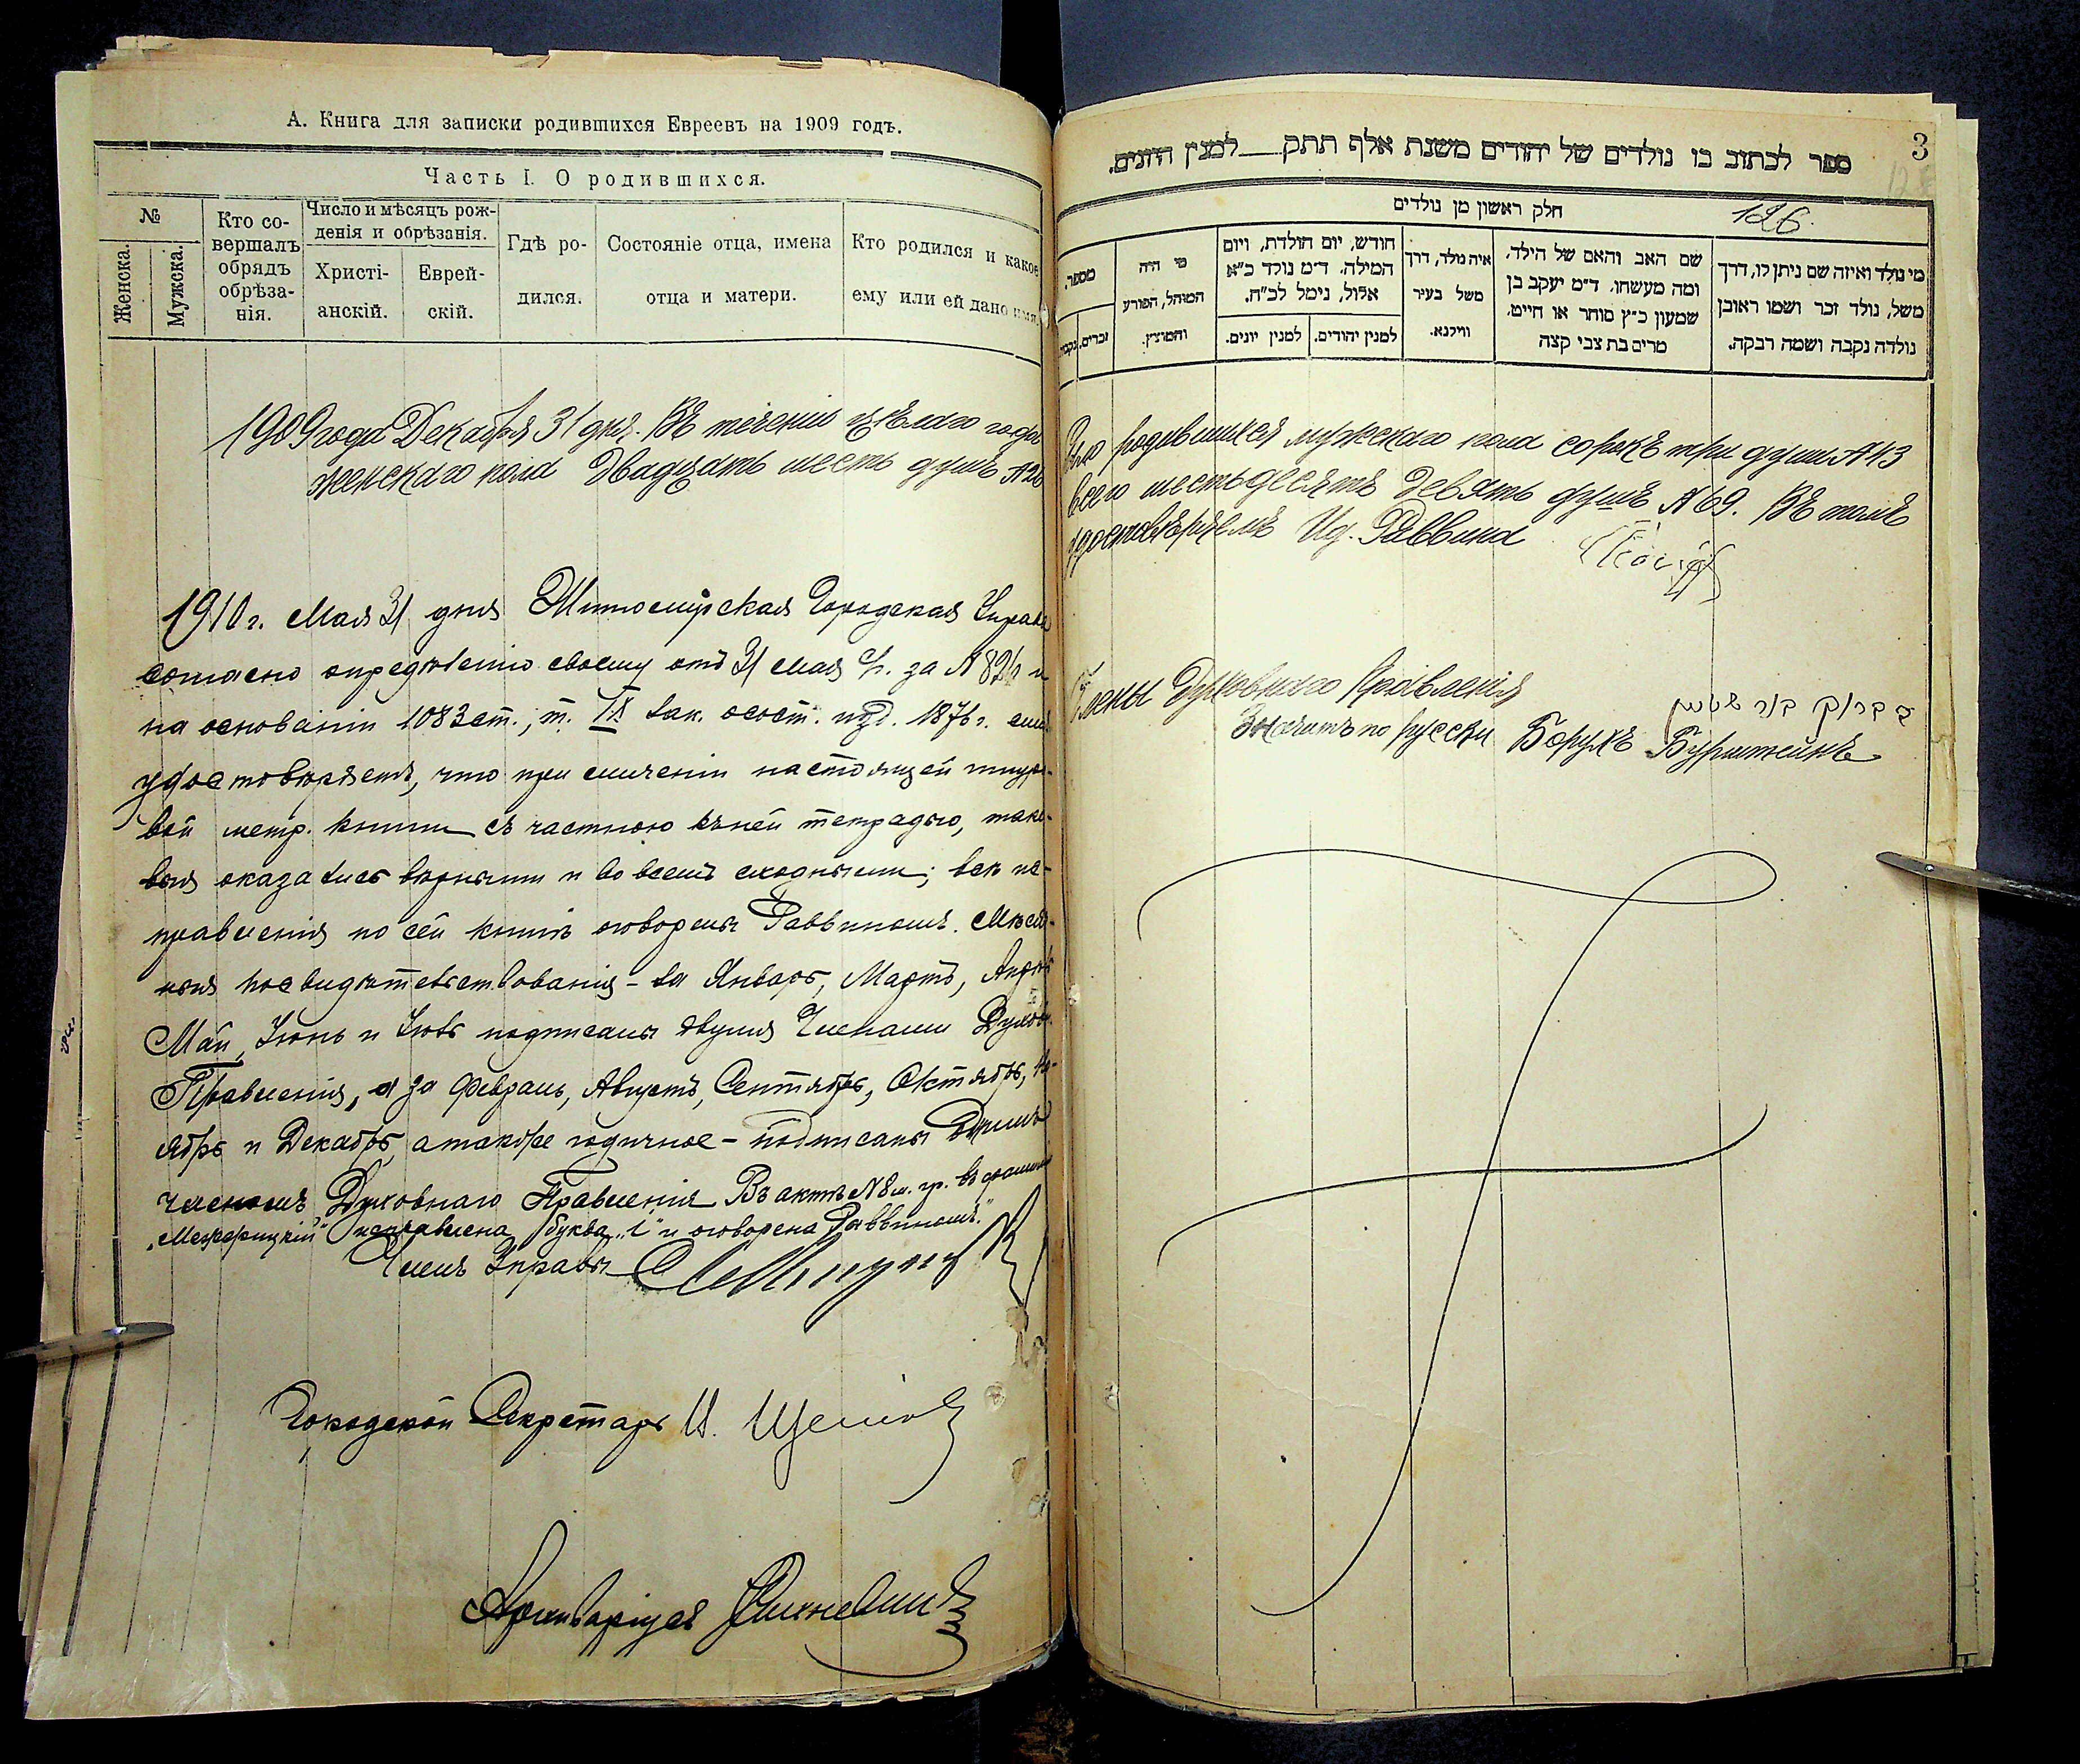 А. Книга для записки родившихся Евреевъ на 1909 годъ.
Часть I. О родившихся.
№
Женска.
Мужска.
Кто со-
вершалъ
обрядъ
обрѣза-
нія.
Число и мѣсяцъ рож-
денія и обрѣзанія.
Христі-
анскій.
Еврей-
скій.
Гдѣ ро-
дился.
Состояніе отца, имена
отца и матери.
Кто родился и какое
ему или ей дано имя.
1909 года Декабря 31 дня. Въ теченіи цѣлаго года
женскаго пола двадцать шесть душъ № 26
1910 г. Мая 31 дня Житомірская Городская Управа
согласно опредѣленію своему отъ 31 мая за № 821 и
на основаніи 1083 ст., т. IX зак. о сост. изд. 1876 г. симъ
удостовѣряетъ, что при сличеніи настоящей шнуро-
вой метр. книги съ частною къ ней тетрадью, тако-
выя оказались вѣрными и во всемъ сходными; всѣ ис-
правленія по сей книгѣ оговорены Раввиномъ. Мѣсяч-
ныя посвидѣтельствованія - за Январь, Мартъ, Апрѣль
Май, Іюнь и Іюль подписаны двумя Членами Духовн.
Правленія, а за Февраль, Августъ, Сентябрь, Октябрь, Но-
ябрь и Декабрь, а также годичное - подписаны однимъ
членомъ Духовнаго Правленія Въ актѣ № 8 м. гр. въ фамиліи
"Межерицкій" исправлена буква "і" и оговорена Раввиномъ."
Членъ Управы
Городской Секретарь И.
Архиваріусъ
3
ספר לכתוב בו נולדים של יהודים משנת אלף תתק למנין היונים.
חלק ראשון מן נולדים
126.
מי נולד ואיזה שם ניתן לו, דרך
משל, נולד זכר ושמו ראובן
נולדה נקבה ושמה רבקה.
שם האב והאם של הילד,
ומה מעשהו. ד״מ יעקב בן
שמעון כ״ץ סוחר או חייט,
מרים בת צבי קצה
איה נולד, דרך
משל בעיר
ווילנא.
חודש, יום הולדת, ויום
המילה. ד״מ נולד כ״א
אלול, נימל לכ״ח.
למנין יהודים.
למנין יונים.
מי היה
המוהל, הפורע
והמוצץ.
מספר.
זכרים.
נקבות
было родившихся мужескаго пола сорокъ три души № 43
всего шестьдесятъ девять душъ № 69. Въ томъ
удостовѣряемъ Ид. Раввина
Члены Духовнаго Правленія
Значитъ по русски Борухъ Бурштейнъ